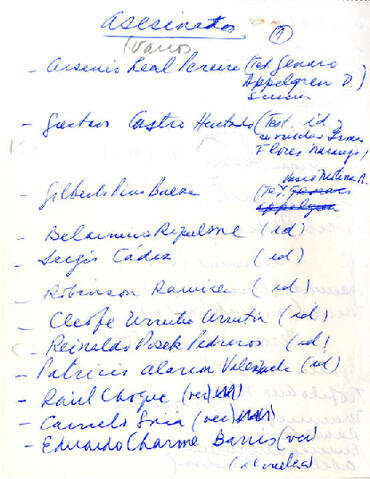 Asesinatos (1)
Varios
- Arsenio Leal Pereira (Test. Genaro
Appelgren D.)
- Gustavo Castro Hurtado (Test. id. y
Flores Naranjo)
Vasco Molina A.
- Gilberto Pino Baeza (Test. Genaro
Appelgren
- Belarmino (id)
- Sergio Cádiz (id)
- Robinson Ramírez (id)
- Cleofe Urrutia Urrutia (id)
- Reinaldo Posek Pedreros (id)
- Patricio Alarcon Valenzuela (id)
- Raúl Choque (ver)
- Carmelo Soria (ver)
- Eduardo Charme Barros (ver